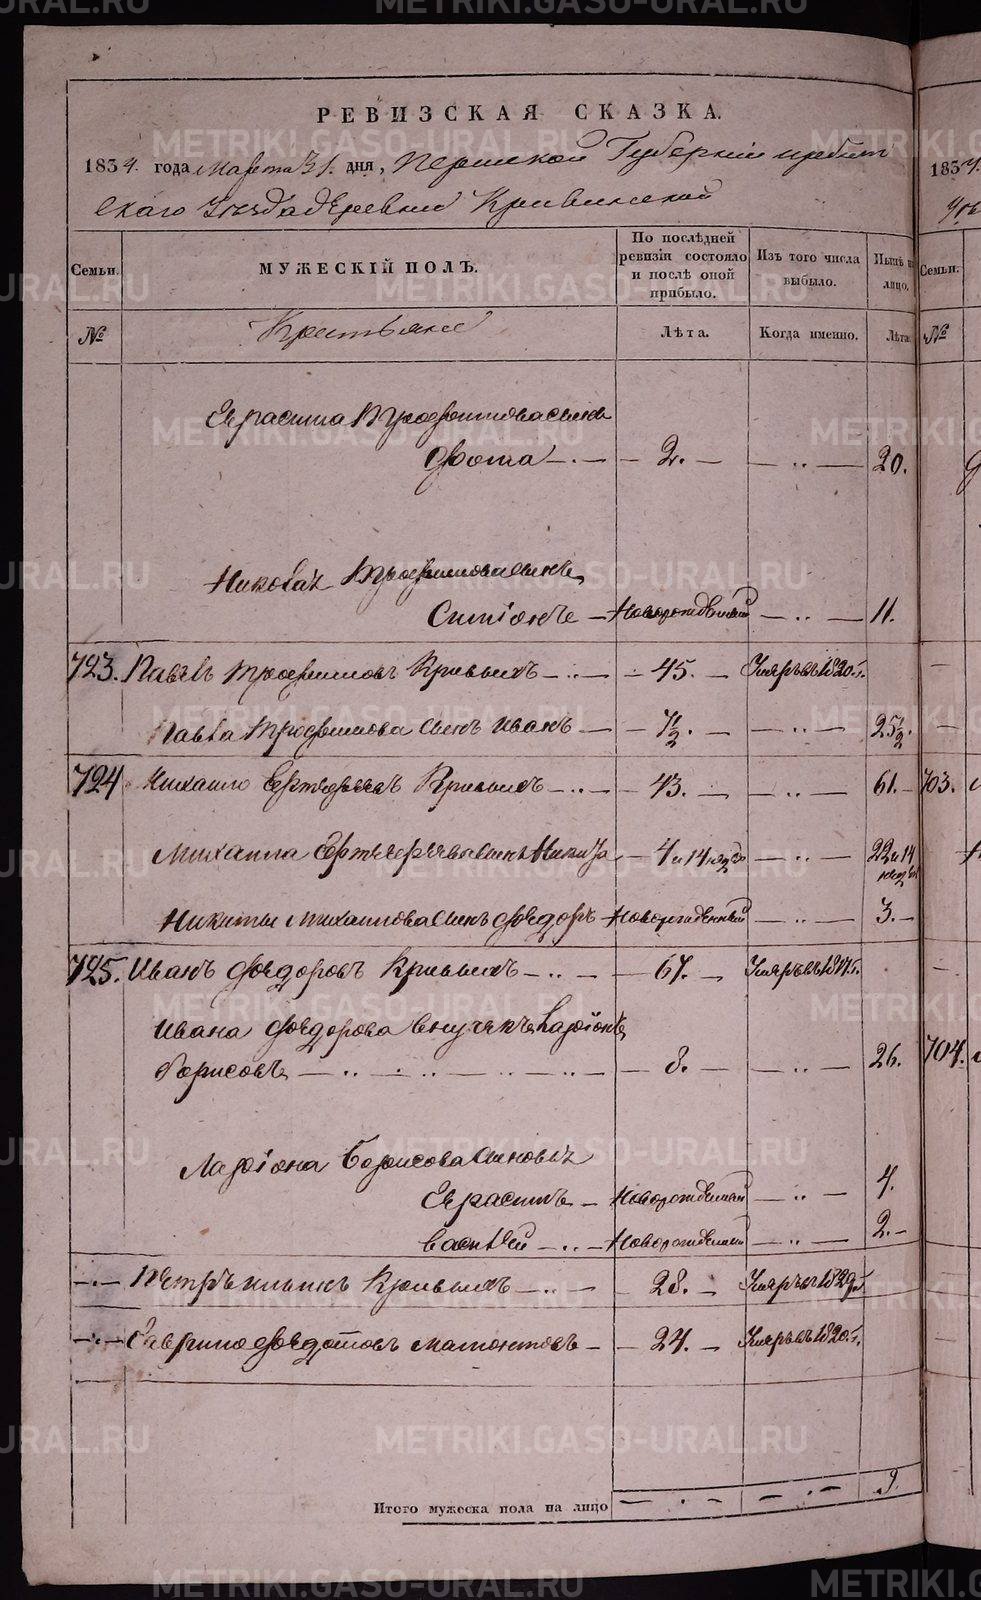 РЕВИЗСКАЯ СКАЗКА.
1834. года Марта 31. дня, Пермской Губернии Ирбит
скаго Уезда деревни Кривинской
Семьи.
МУЖЕСКІЙ ПОЛЪ.
По послѣдней ревизіи состояло и послѣ оной прибыло.
Изъ того числа выбыло.
Нынѣ на лицо.
№
Крестьяне
Лѣта.
Когда именно.
Лѣта.
Ераста Трофимова сынъ
Фота — 2. — 20.
Николая Трофимова сынъ
Симіонъ — Новорожденный — 11.
723. Павелъ Трофимовъ Кривыхъ — 45. — Умре въ 1820 г.
Павла Трофимова сынъ Иванъ — 7 1/2. — 25 1/2.
724 Михайло Кривыхъ — 43. — 61.
Михаила сынъ Никита — 4 и 14 — 22 и 14
Никиты Михайлова сынъ Федоръ Новорожденный — 3.
725. Иванъ Федоровъ Кривыхъ — 67. — Умре въ г.
Ивана Федорова внучекъ Ларіонъ
Борисовъ — 8. — 26.
Ларіона Борисова сыновья
Ерастъ — Новорожденный — 4.
Василей — Новорожденный — 2.
Петръ Ильинъ Кривыхъ — 28. — Умре въ 1829 г.
Гаврило Федотовъ Мамонтовъ — 24. — Умре въ 1820 г.
Итого мужеска пола на лицо 9.
1834.
Семьи.
№
703.
704.
METRIKI.GASO-URAL.RU